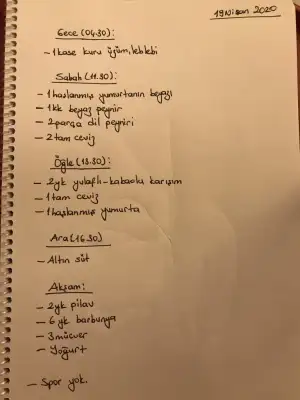 19 Nisan 2020
Gece (04.30):
- 1 kase kuru üzüm, leblebi
Sabah (11.30):
- 1 haşlanmış yumurtanın beyazı
- 1 kk beyaz peynir
- 2 parça dil peyniri
- 2 tam ceviz
Öğle (13.30):
- 2 yk yulaflı-kabaklı karışım
- 1 tam ceviz
- 1 haşlanmış yumurta
Ara (16.30)
- Altın süt
Akşam:
- 2 yk pilav
- 6 yk barbunya
- 3 mücver
- Yoğurt
- Spor yok.